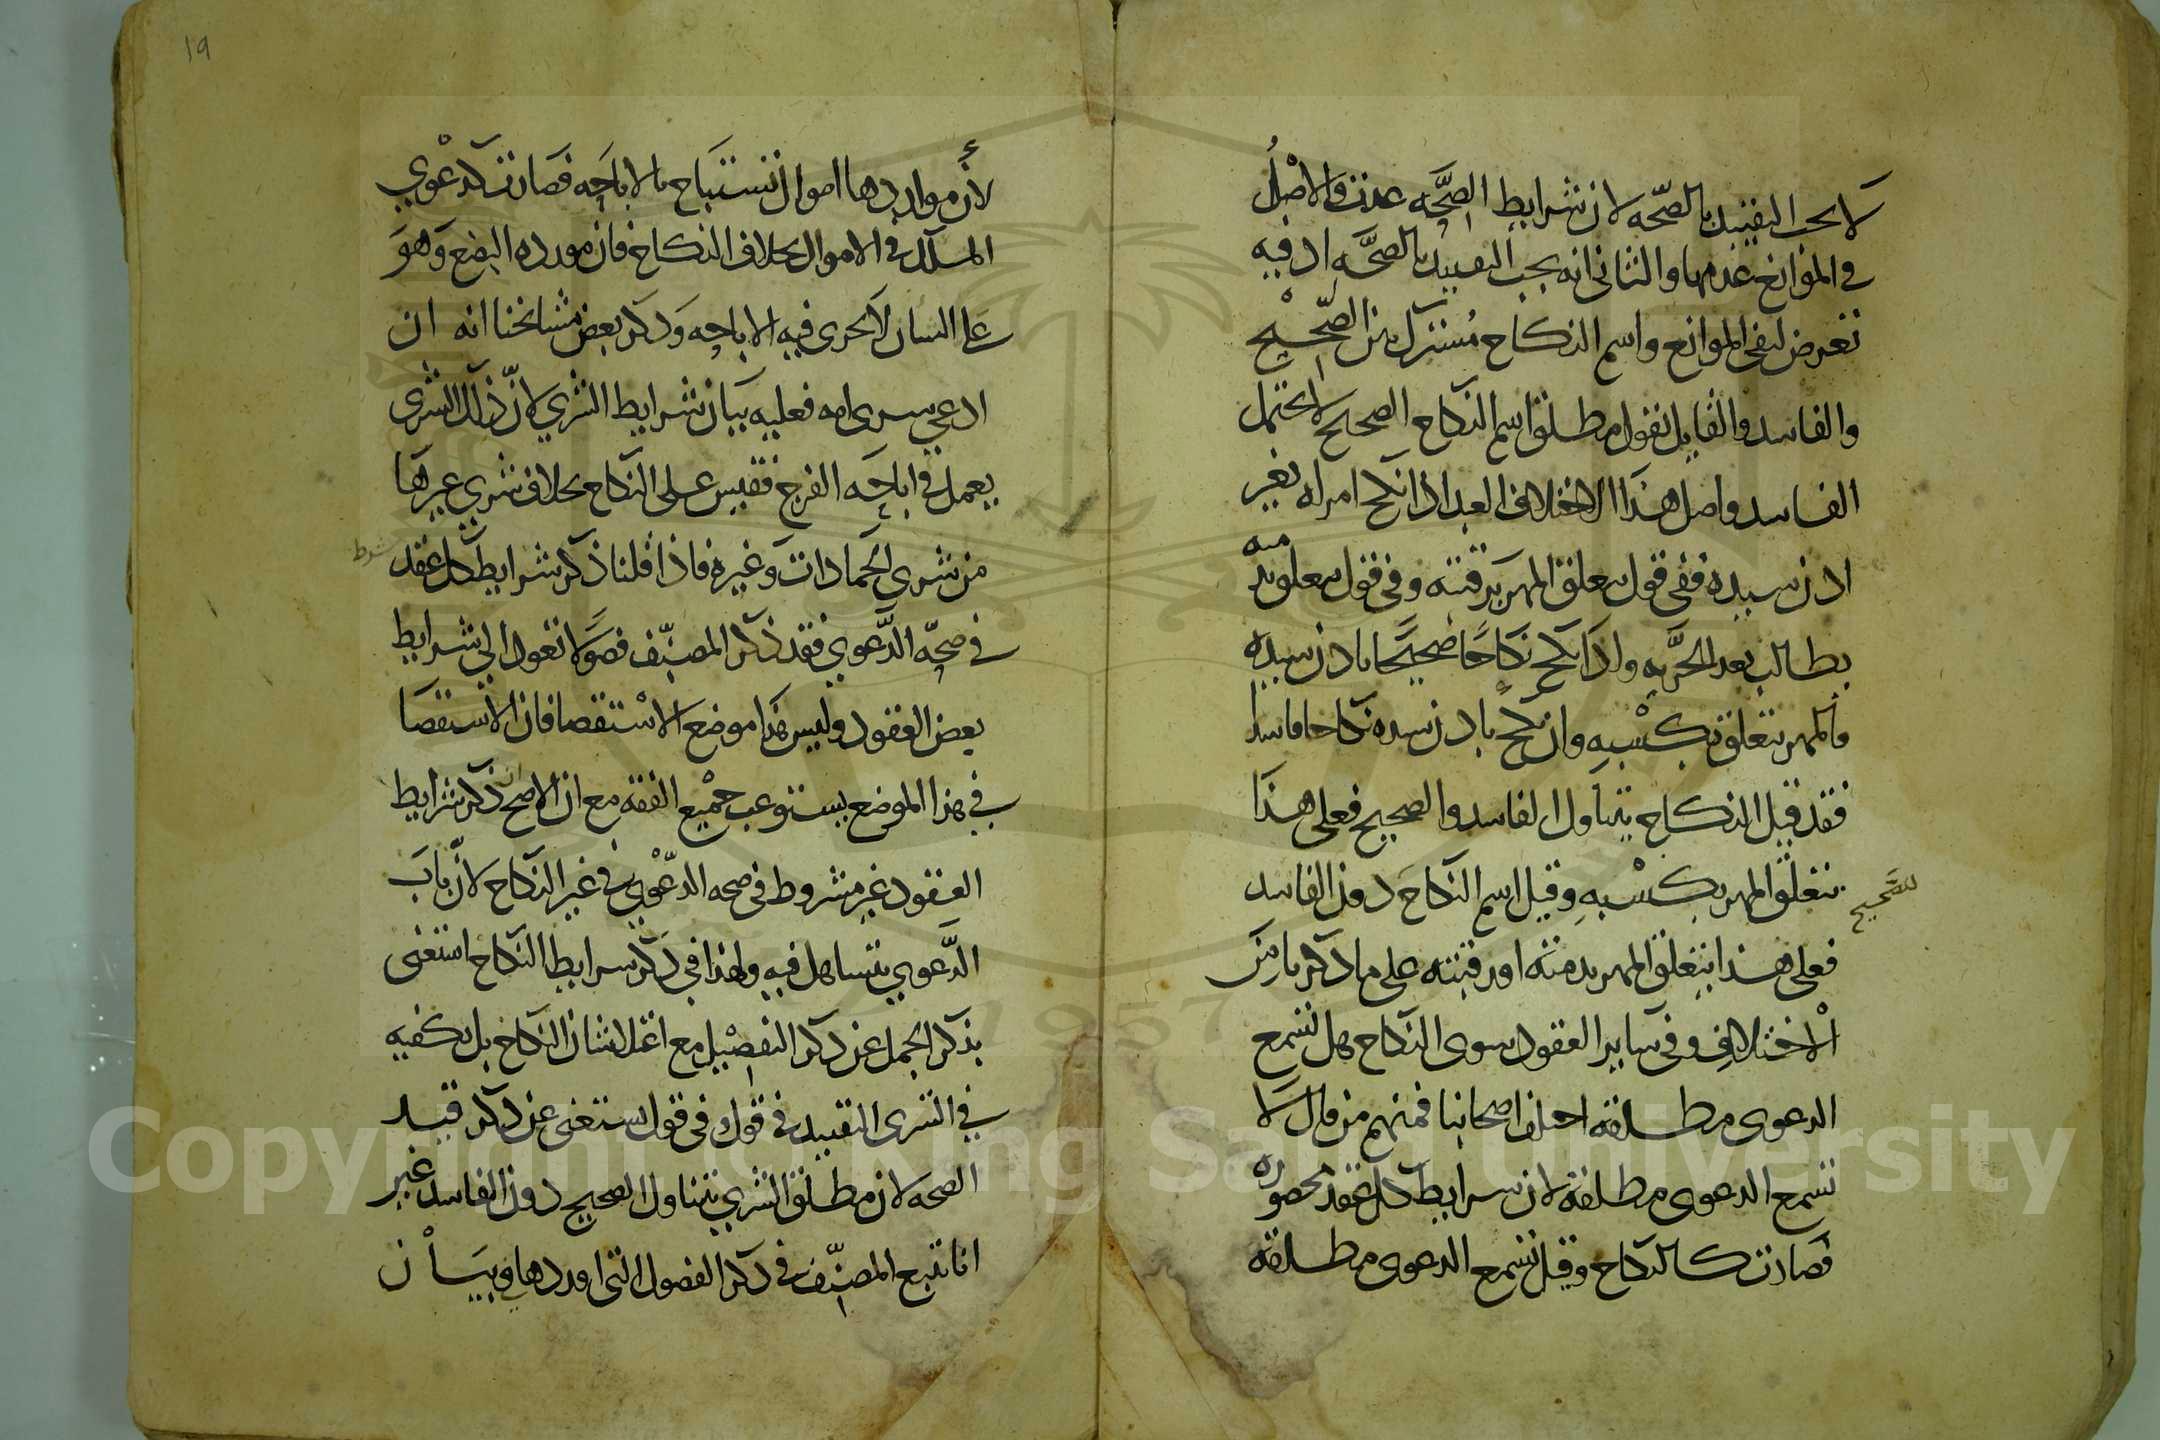 لا يجب التقييد بالصحه لان شرايط الصحه عدت والاصل
في الموانع عدمها والثاني انه يجب التقييد بالصحه اذ فيه
تعرض لنفي الموانع واسم النكاح مشترك بين الصحيح
والفاسد والقايل يقول مطلق اسم النكاح الصحيح لا يحتمل
الفاسد واصل هذا الاختلاف العبد اذا نكح امراه بغير
اذن سيده ففي قول يتعلق المهر برقبته وفي قول يتعلق بذمته
يطالب بعد الحريه واذا نكح نكاحا صحيحا باذن سيده
فالمهر يتعلق بكسبه وان نكح باذن سيده نكاحا فاسدا
فقد قيل النكاح يتناول الفاسد والصحيح فعلى هذا
يتعلق المهر بكسبه وقيل اسم النكاح دون الفاسد
للصحيح
فعلى هذا يتعلق المهر بذمته او رقبته على ما ذكرنا من
الاختلاف وفي ساير العقود سوى النكاح هل تسمع
الدعوى مطلقه اختلف اصحابنا فمنهم من قال لا
تسمع الدعوى مطلقة لان شرايط كل عقد محصوره
فصارت كالنكاح وقيل تسمع الدعوى مطلقة
١٩
لأن مواردها اموال تستباح بالاباحه فصارت كدعوي
الملك في الاموال بخلاف النكاح فان مورده البضع وهو
لا يجرى فيه الاباحه وذكر بعض مشايخنا انه ان
ادعي شرى امه فعليه بيان شرايط الشري لان ذلك الشرى
يعمل في اباحه الفرج فقيس على النكاح بخلاف شري غيرها
من شرى الجمادات وغيره فاذا قلنا ذكر شرايط كل عقد
شرط
في صحه الدعوي فقد ذكر المصنف فصولا تعول الي شرايط
بعض العقود وليس هذا موضع الاستقصا فان الاستقصا
في هذا الموضع يستوعب جميع الفقه مع ان الاصح ان ذكر شرايط
العقود غير مشروط في صحه الدعوي في غير النكاح لان باب
الدعوي يتساهل فيه ولهذا في ذكر شرايط النكاح استغنى
بذكر الجمل عن ذكر التفصيل مع اغتلا شان النكاح بل يكفيه
في الشرى التقييد في قول وفي قول يستغنى عن ذكر قيد
الصحه لان مطلق الشري يتناول الصحيح دون الفاسد غير
انا نتبع المصنف في ذكر الفصول التي اوردها وبيان
Copyright © King Saud University
1957